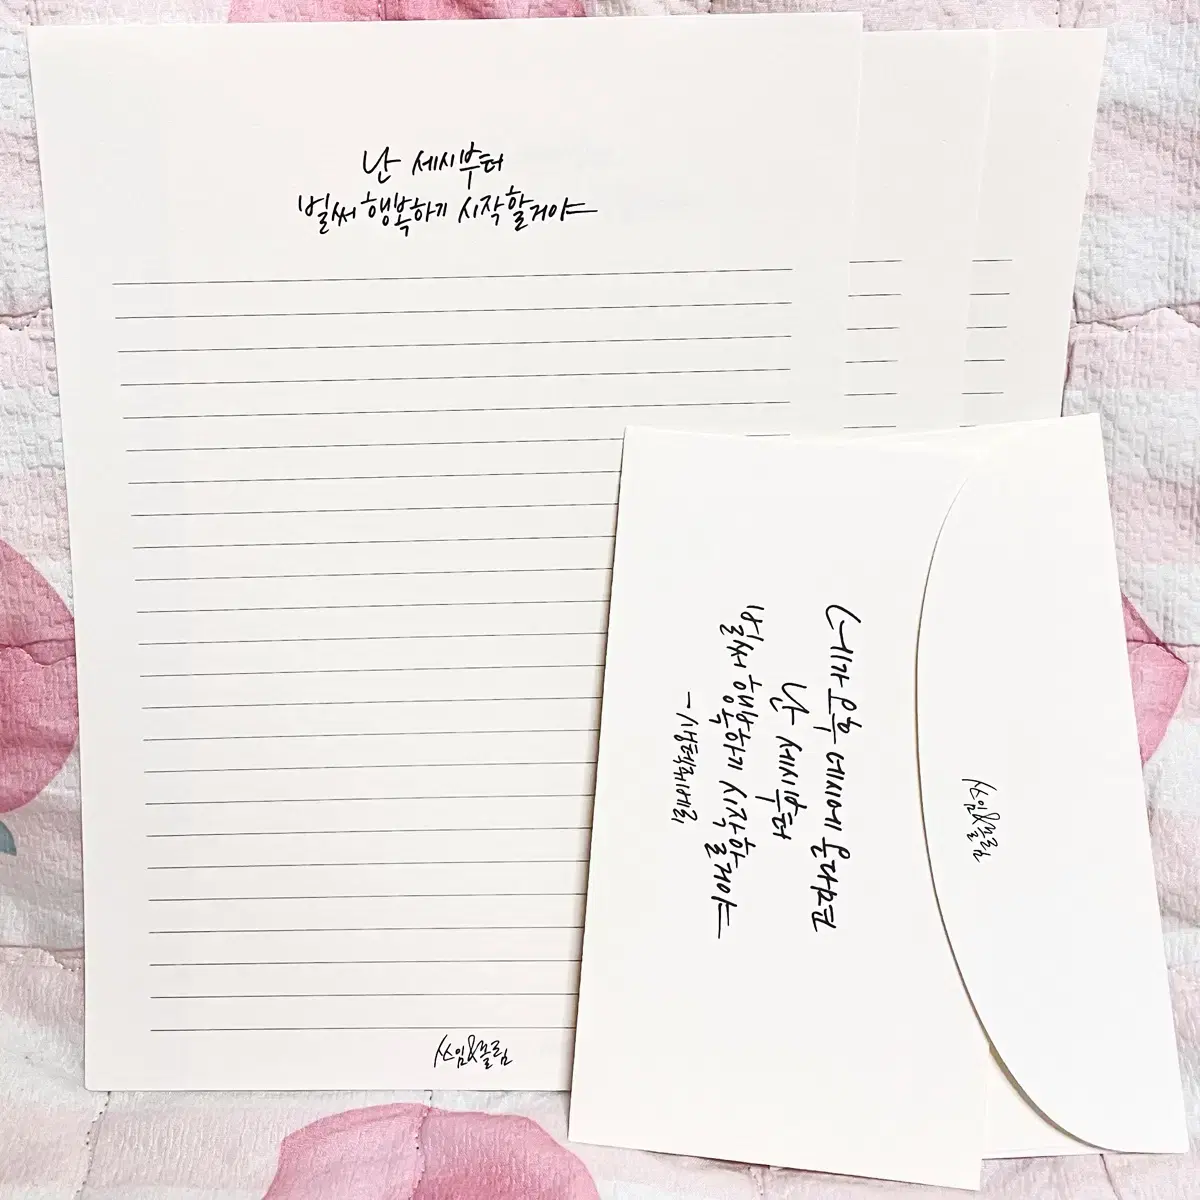 난 세시부터
벌써 행복하기 시작할거야
쓰임&올림
네가 오후 네시에 온다면
난 세시부터
벌써 행복하기 시작할거야
-생텍쥐페리
쓰임&올림